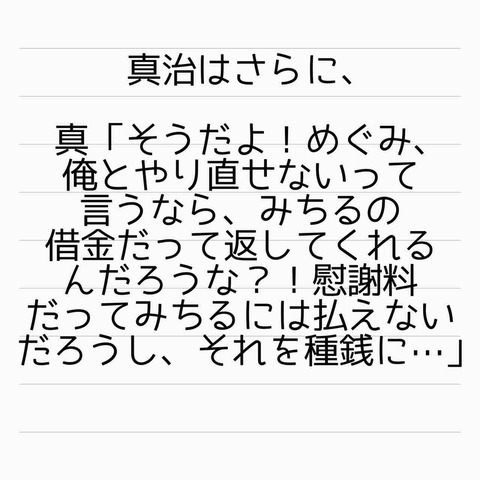 真治はさらに、
真「そうだよ！めぐみ、
俺とやり直せないって
言うなら、みちるの
借金だって返してくれる
んだろうな？！慰謝料
だってみちるには払えない
だろうし、それを種銭に…」